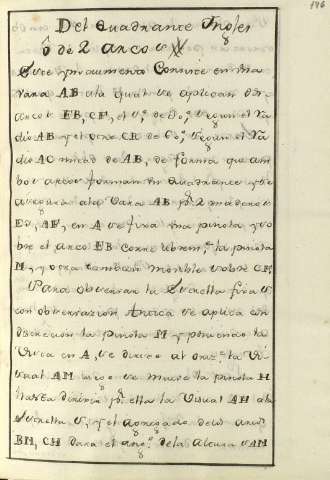 146
Del Quadrante Ingles
ô de 2 arcos
Este instrumento Consiste en una
vara AB ala qual se aplican dos
arcos EB, CF, el 1º de 30º segun el Ra
dio AB y el otro CF de 60º segun el Ra
dio AC mitad de AB, de forma que am
bos arcos forman un Quadrante, se
asegura ala vara AB pr. 2 maderos
ED, AF, en A se fixa una pinola, so
bre el arco EB Corre librem.te la pinola
M, y otra tambien movible sobre CF.
Para observar la Estrella fixa
con observacion Antica se aplica con
discrecion la pinola M y poniendo la
Vista en A, se dirige al oriz.te la Vi
sual AM luego se mueve la pinola H
hasta dirigir pr. ella la Visual AH ala
Estrella S, y el agregado delos arcos
BM, CH dara el ang.º dela altura SAM